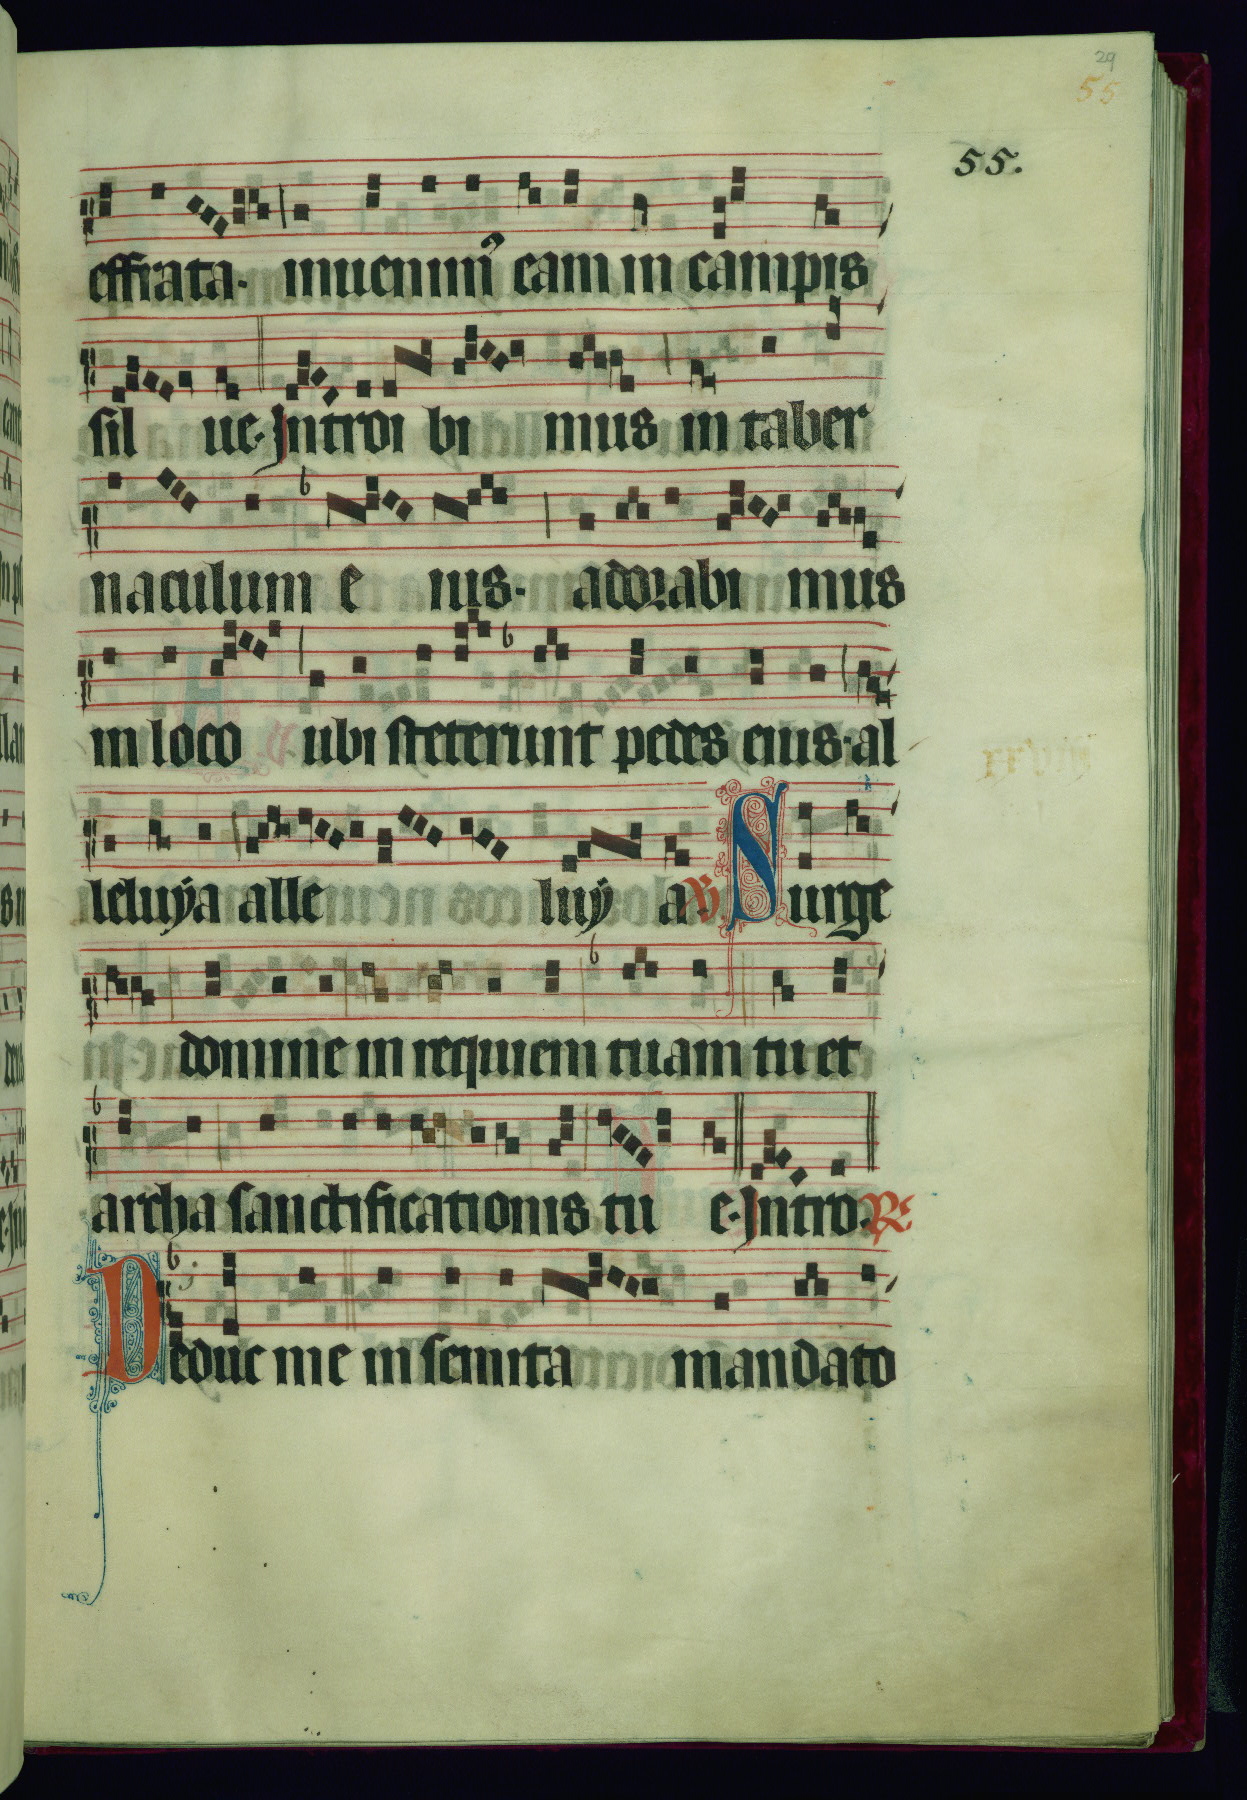 29
55
55.
effrata. inuenim9 eam in campis
sil ue. Introi bi mus in taber
naculum e ius. adorabi mus
in loco ubi steterunt pedes eius. al
leluya alle luy a. V. Surge
domine in requiem tuam tu et
archa sanctificationis tu e. Intro. R.
Deduc me in semita mandato